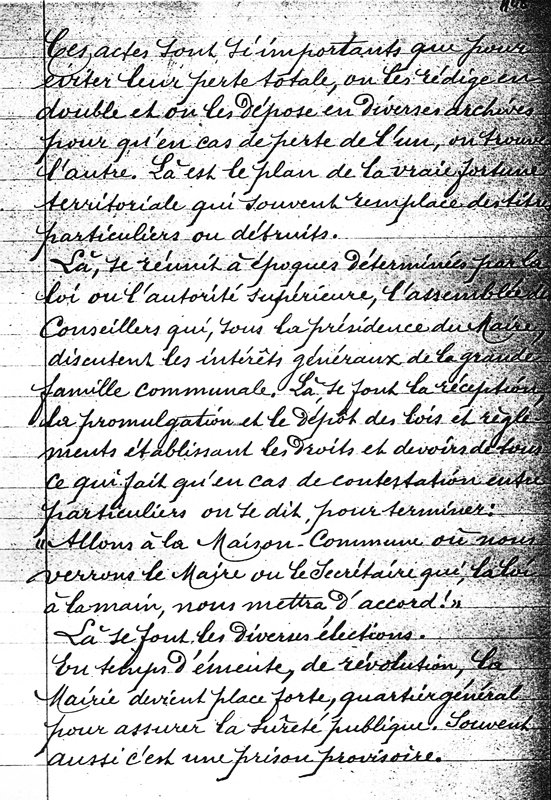 Ces actes sont si importants que pour
éviter leur perte totale, on les rédige en
double et on les dépose en diverses archives
pour qu'en cas de perte de l'un, on trouve
l'autre. Là est le plan de la vraie fortune
territoriale qui souvent remplace des titres
particuliers ou détruits.
Là, se réunit à époques déterminées par la
loi ou l'autorité supérieure, l'assemblée de
Conseillers qui, sous la présidence du Maire,
discutent les intérêts généraux de la grande
famille communale. Là, se font la réception,
la promulgation et le dépôt des lois et règle
ments établissant les droits et devoirs de tous
ce qui fait qu'en cas de contestation entre
particuliers on se dit, pour terminer:
"Allons à la Maison-Commune où nous
verrons le Maire ou le Secrétaire qui, la loi
à la main, nous mettra d'accord!"
Là se font les diverses élections.
En temps d'émeute, de révolution, la
Mairie devient place forte, quartier général
pour assurer la sûreté publique. Souvent
aussi c'est une prison provisoire.